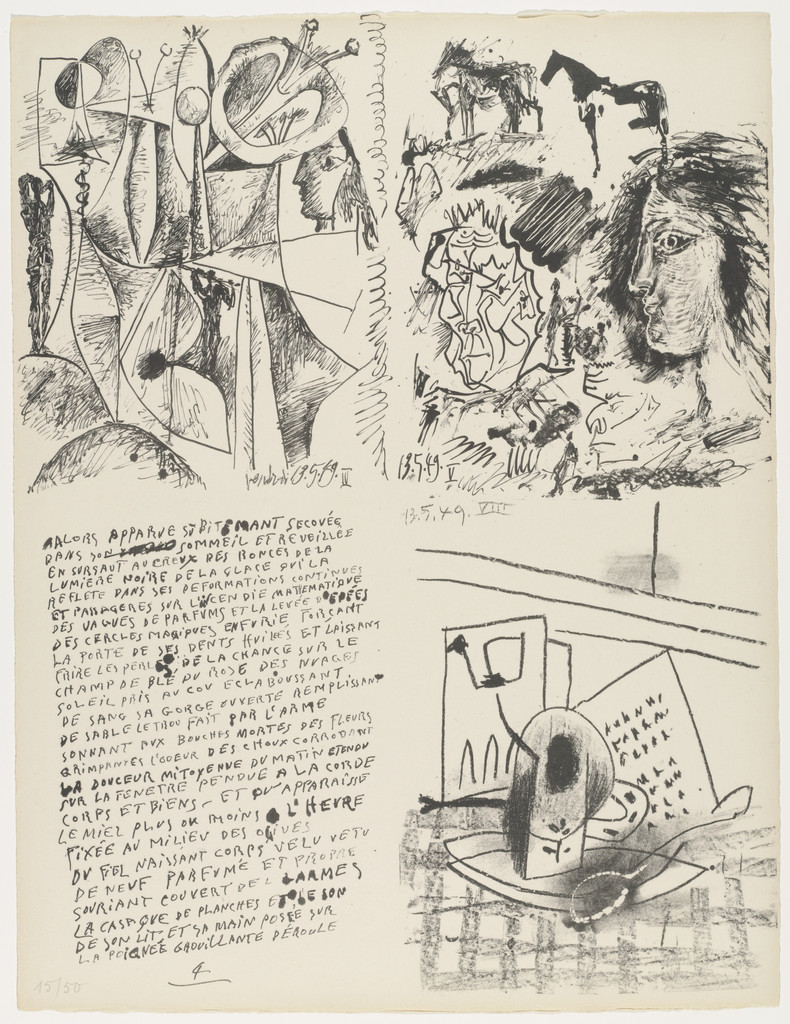 vendredi 13.5.49. IV
13.5.49. V
13.5.49. VIII
ALORS APPARUE SUBITEMANT SECOUÉE
DANS SON SOMMEIL ET REVEILLEE
EN SURSAUT AU CREUX DES RONCES DE LA
LUMIERE NOIRE DE LA GLACE QUI LA
REFLETE DANS SES DEFORMATIONS CONTINUES
ET PASSAGERES SUR L'INCENDIE MATHEMATIQUE
DES VAGUES DE PARFUMS ET LA LEVÉE D'EPÉES
DES CERCLES MAGIQUES EN FURIE FORÇANT
LA PORTE DE SES DENTS HUILÉES ET LAISSANT
FRIRE LES PERLES DE LA CHANCE SUR LE
CHAMP DE BLÉ DU ROSE DES NUAGES
SOLEIL PRIS AU COU ECLABOUSSANT
DE SANG SA GORGE OUVERTE REMPLISSANT
DE SABLE LE TROU FAIT PAR L'ARME
SONNANT AUX BOUCHES MORTES DES FLEURS
GRIMPANTES L'ODEUR DES CHOUX CORRODANT
LA DOUCEUR MITOYENNE DU MATIN ETENDU
SUR LA FENETRE PENDUE A LA CORDE
CORPS ET BIENS – ET QU'APPARAISSE
LE MIEL PLUS OU MOINS A L'HEVRE
FIXÉE AU MILIEU DES OLIVES
DU FIEL NAISSANT CORPS VELU VETU
DE NEUF PARFUMÉ ET PROPRE
SOURIANT COUVERT DE LARMES
LA CASAQUE DE PLANCHES ET DE SON
DE SON LIT ET SA MAIN POSÉE SUR
LA POIGNÉE GAOUILLANTE DÉROULE
15/50